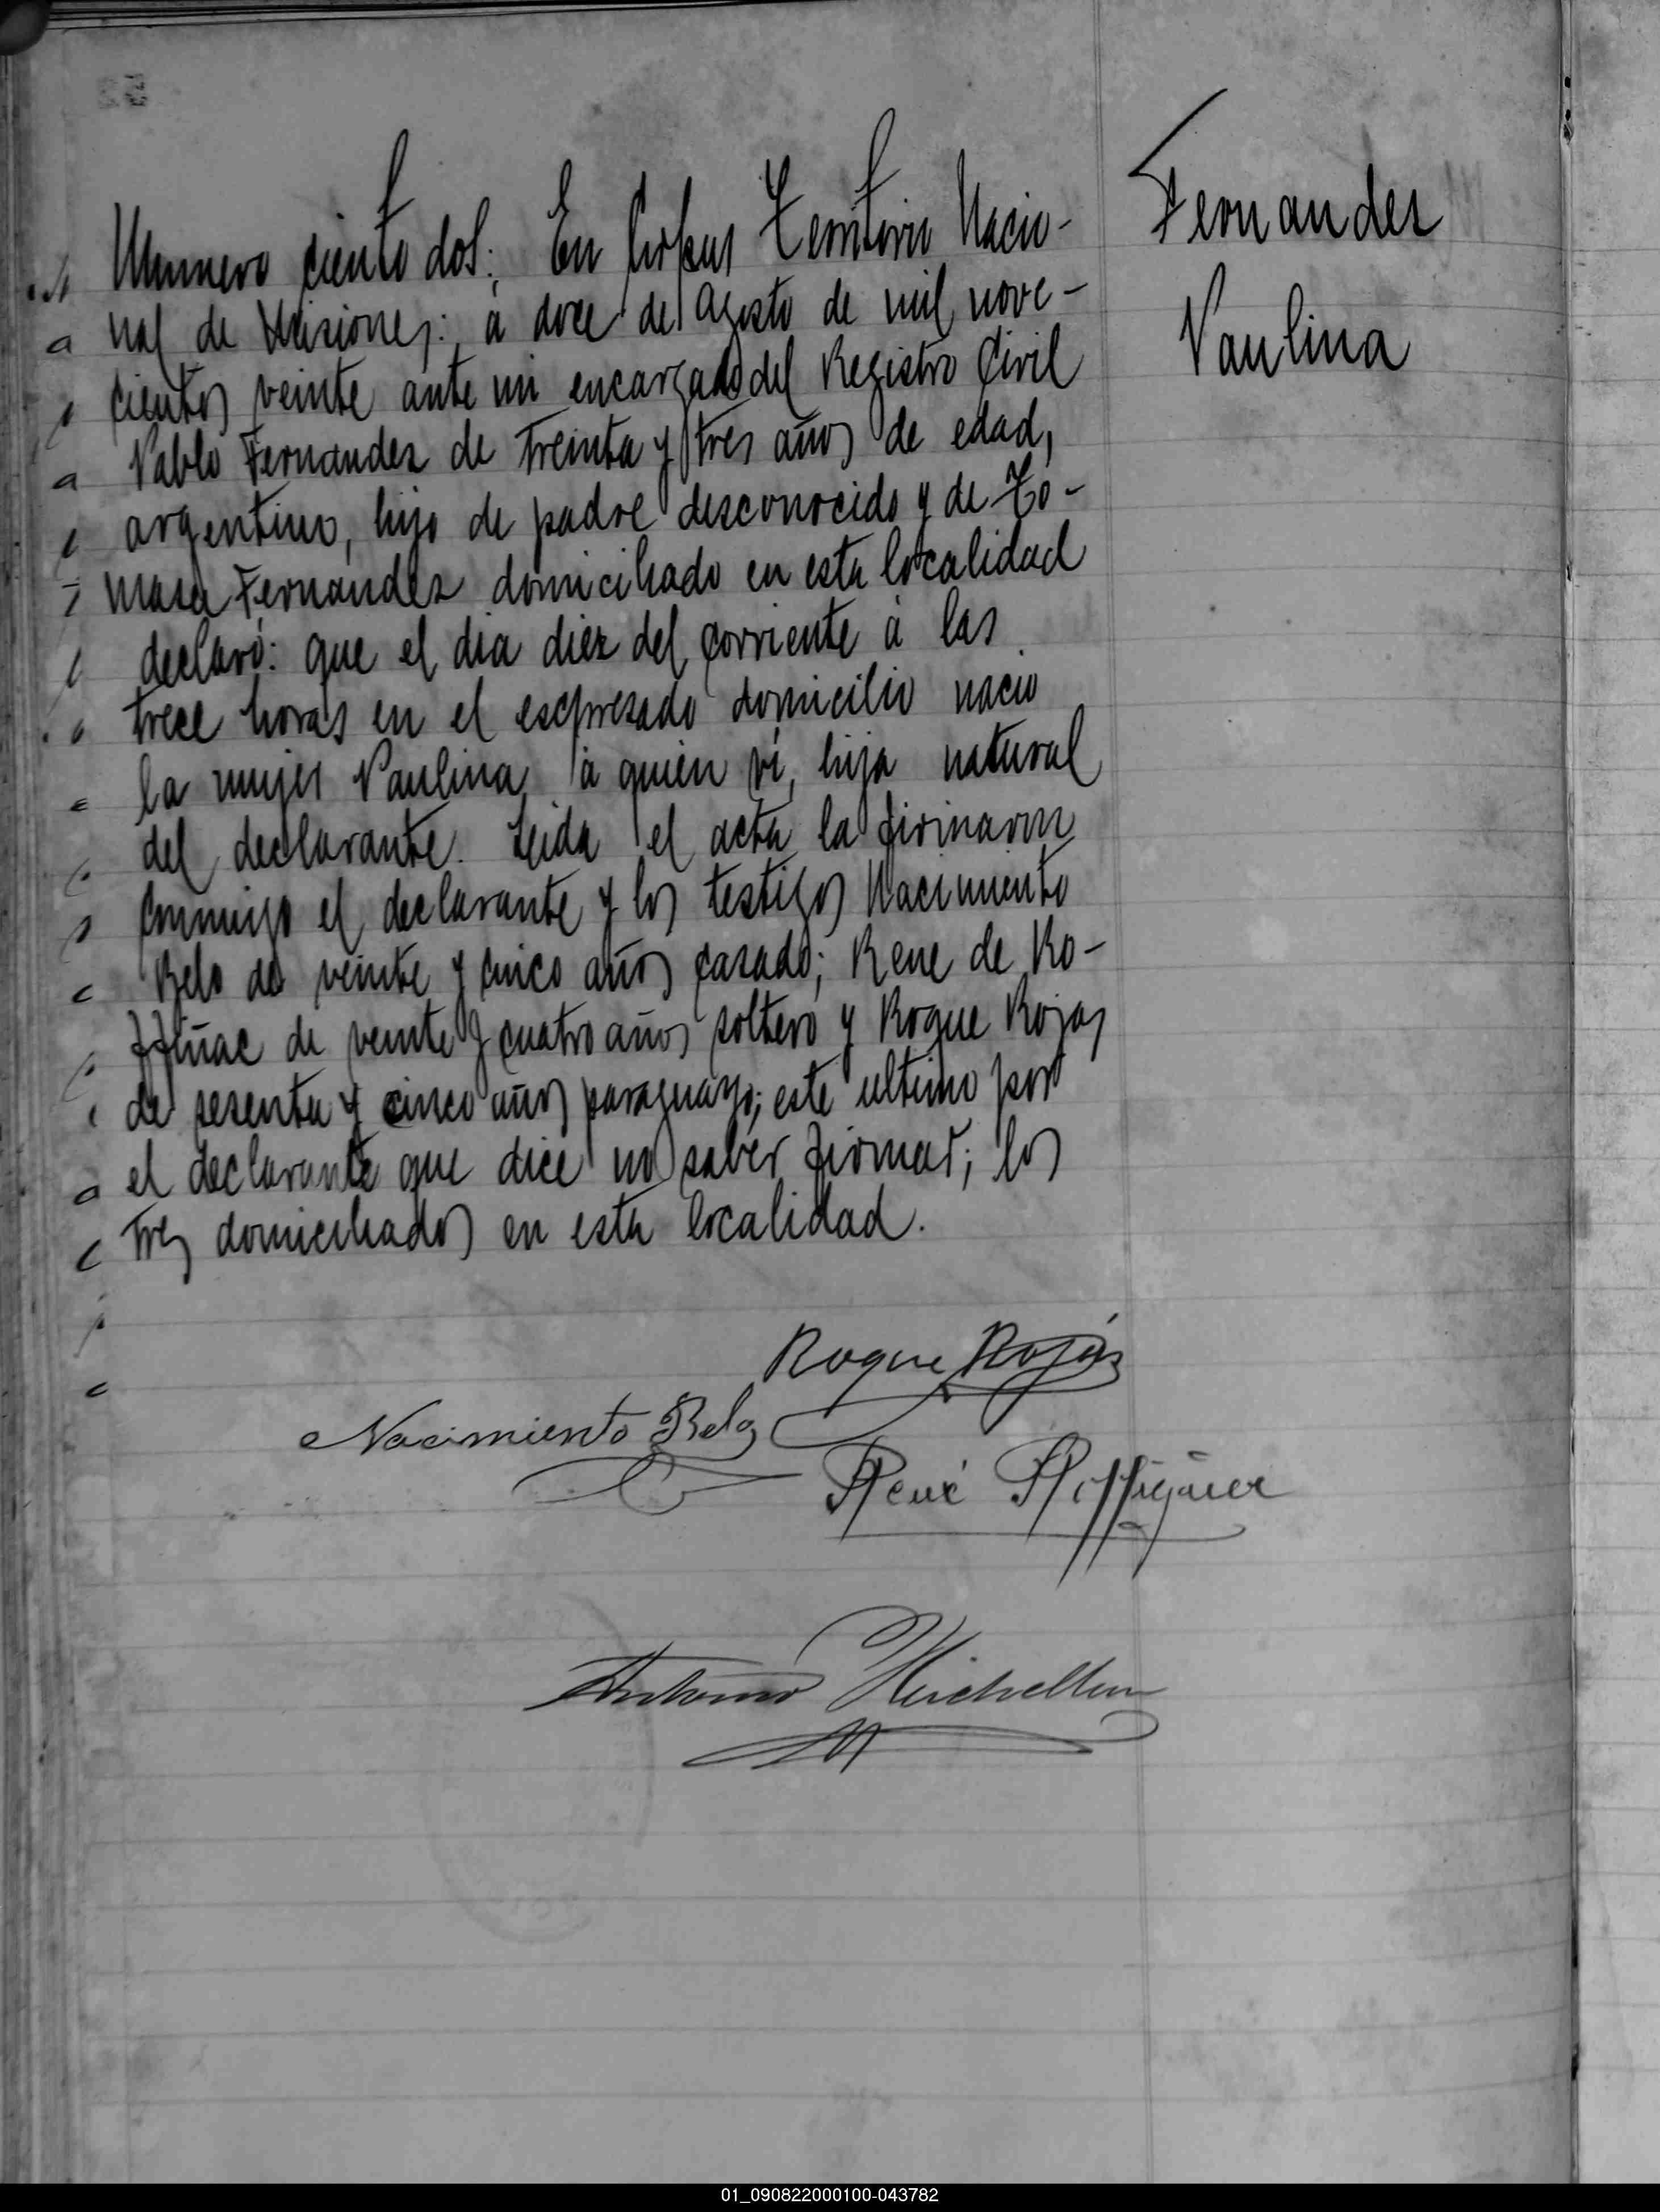 Numero ciento dos: En Corpus Territorio Nacio-
nal de Misiones: á doce de Agosto de mil nove-
cientos veinte ante mi encargado del Registro Civil
Pablo Fernandez de treinta y tres años de edad,
argentino, hijo de padre desconocido y de To-
masa Fernandez domiciliado en esta localidad
declaró: que el dia diez del corriente á las
trece horas en el escpresado domicilio nacio
la mujer Paulina á quien ví, hija natural
del declarante. Leida el acta la firmaron
conmigo el declarante y los testigos Nacimiento
Belo de veinte y cinco años casado; Rene de Ro-
ffiñac de veinte y cuatro años soltero y Roque Rojas
de sesenta y cinco años paraguayo; este ultimo por
el declarante que dice no saber firmar; los
tres domiciliados en esta localidad.
Fernandez
Paulina
Roque Rojas
Nacimiento Belo
René Roffignac
Antonio
01_090822000100-043782